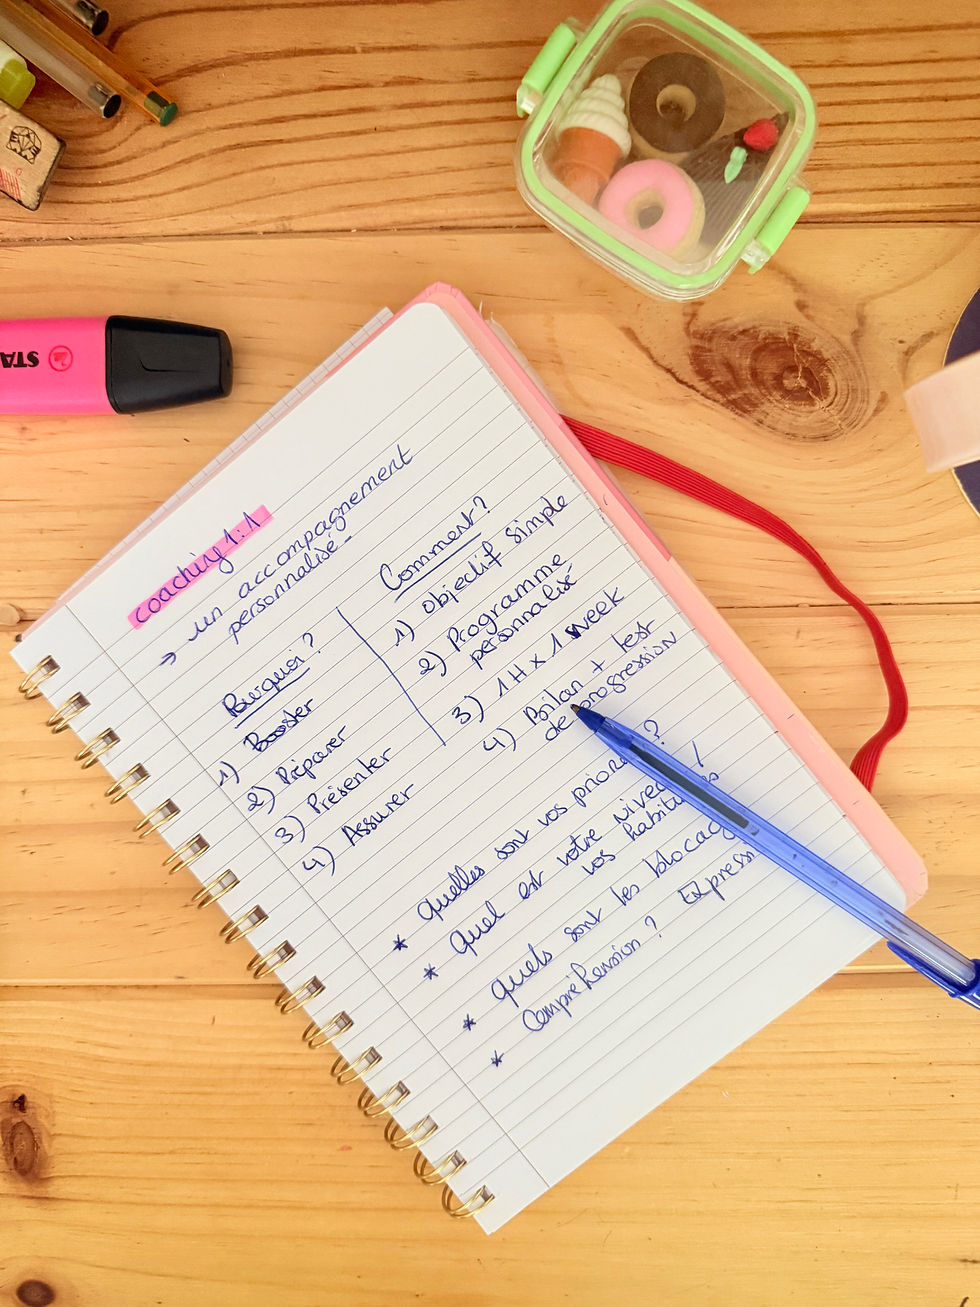 coaching 1:1
→ un accompagnement
personnalisé -
Pourquoi ?
1) Booster
2) Préparer
3) Présenter
4) Assurer
Comment ?
1) objectif simple
2) Programme
personnalisé
3) 1H x 1 week
4) Bilan + test
de progression
* quelles sont vos ?
* quel est votre !
vos
* quels sont les
* Compréhension ?
STA